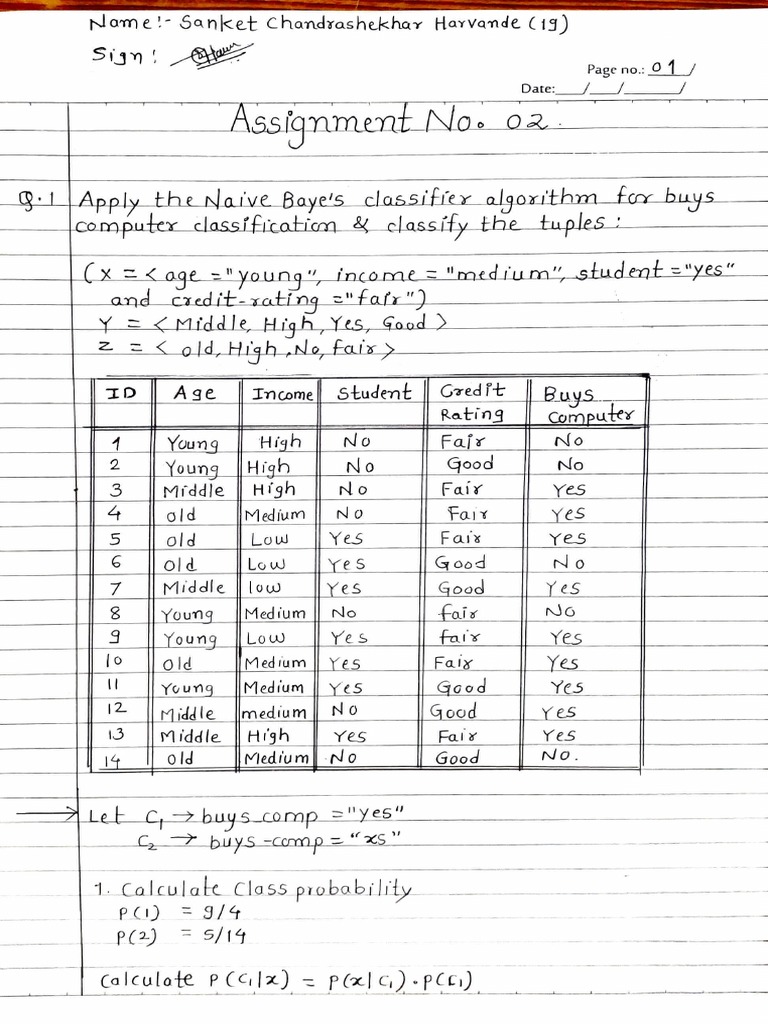 Name:- Sanket Chandrashekhar Harvande (19)
Sign:
Page no.: 01/
Date: __/__/____/
Assignment No. 02.
Q.1 Apply the Naive Baye's classifier algorithm for buys
computer classification & classify the tuples :
(x = < age = "young", income = "medium", student = "yes"
and credit-rating = "fair")
Y = < Middle, High, Yes, Good >
z = < old, High, No, fair >
ID Age Income Student Credit Rating Buys Computer
1 Young High No Fair No
2 Young High No Good No
3 Middle High No Fair Yes
4 old Medium No Fair Yes
5 old Low Yes Fair Yes
6 old Low Yes Good No
7 Middle low Yes Good Yes
8 Young Medium No fair No
9 Young Low Yes fair Yes
10 Old Medium Yes Fair Yes
11 Young Medium Yes Good Yes
12 Middle medium No Good Yes
13 Middle High Yes Fair Yes
14 old Medium No Good No.
→ Let C₁ → buys comp = "yes"
C₂ → buys-comp = "xs"
1. Calculate Class probability
P(1) = 9/4
P(2) = 5/14
Calculate P(C₁|x) = P(x|C₁)·P(C₁)